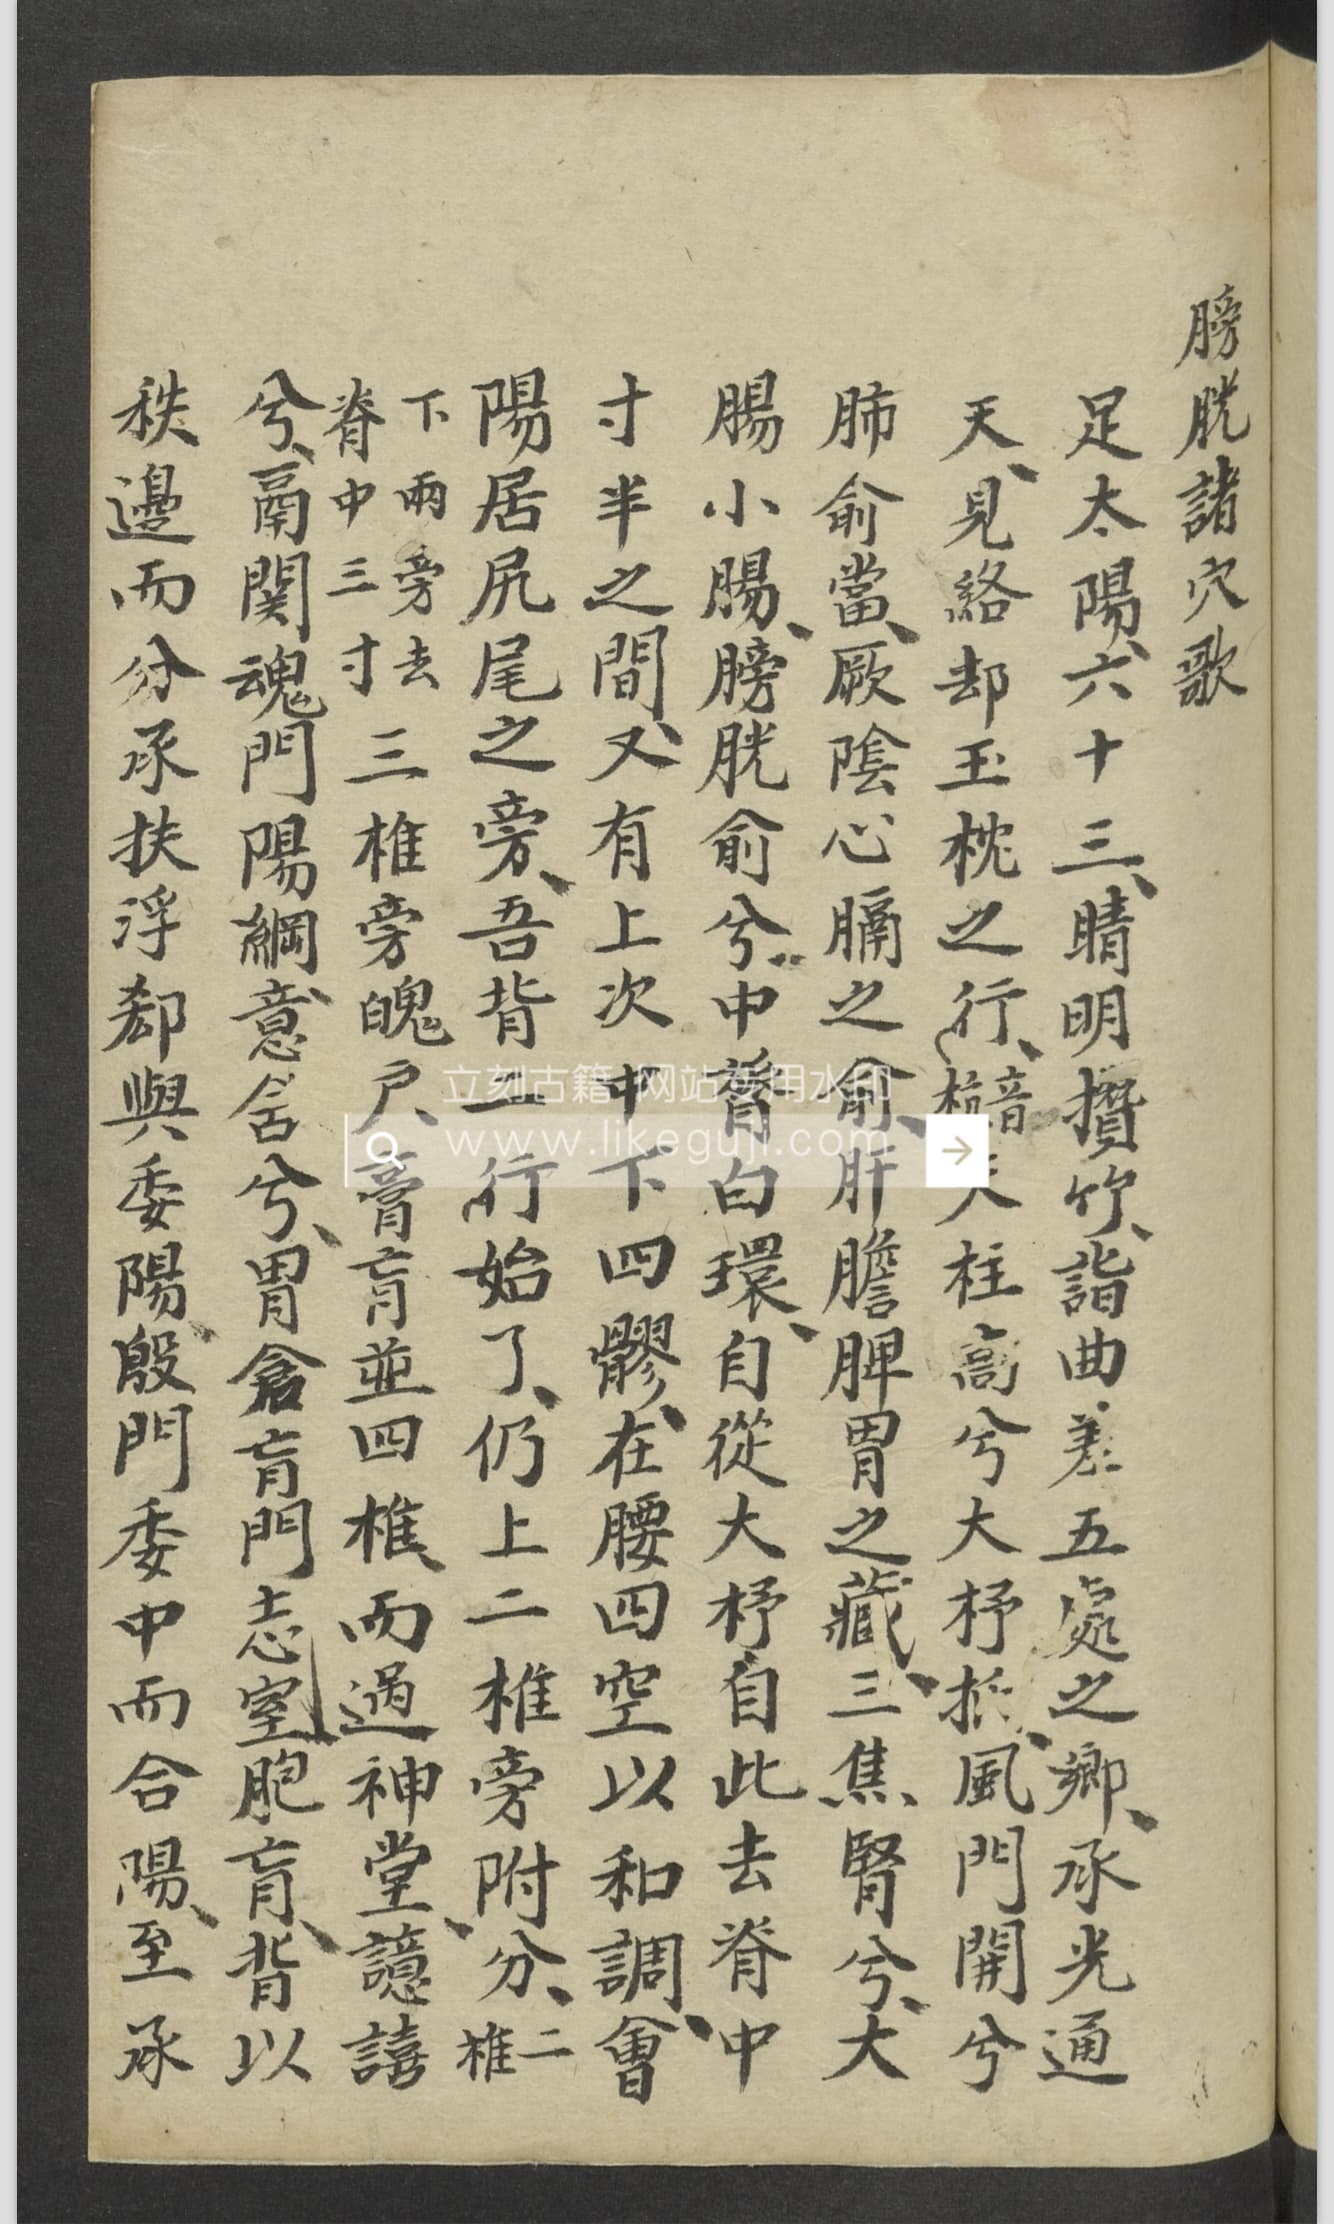 膀胱諸穴歌
足太陽六十三睛明攢竹詣曲差五處之鄉承光通
天見絡却玉枕之行音天柱高兮大杼抵風門開兮
肺俞當厥陰心膈之俞肝膽脾胃之藏三焦腎兮大
腸小腸膀胱俞兮中膂白環自從大杼自此去脊中
寸半之間又有上次中下四髎在腰四空以和調會
陽居尻尾之旁吾背二行始了仍上二椎旁附分二椎
下兩旁去脊中三寸三椎旁魄户膏肓並四椎而過神堂譩譆
兮鬲関魂門陽綱意舍兮胃倉肓門志室胞肓背以
秩邊而分承扶浮郄與委陽殷門委中而合陽至承
立刻古籍 网站专用水印
www.likeguji.com